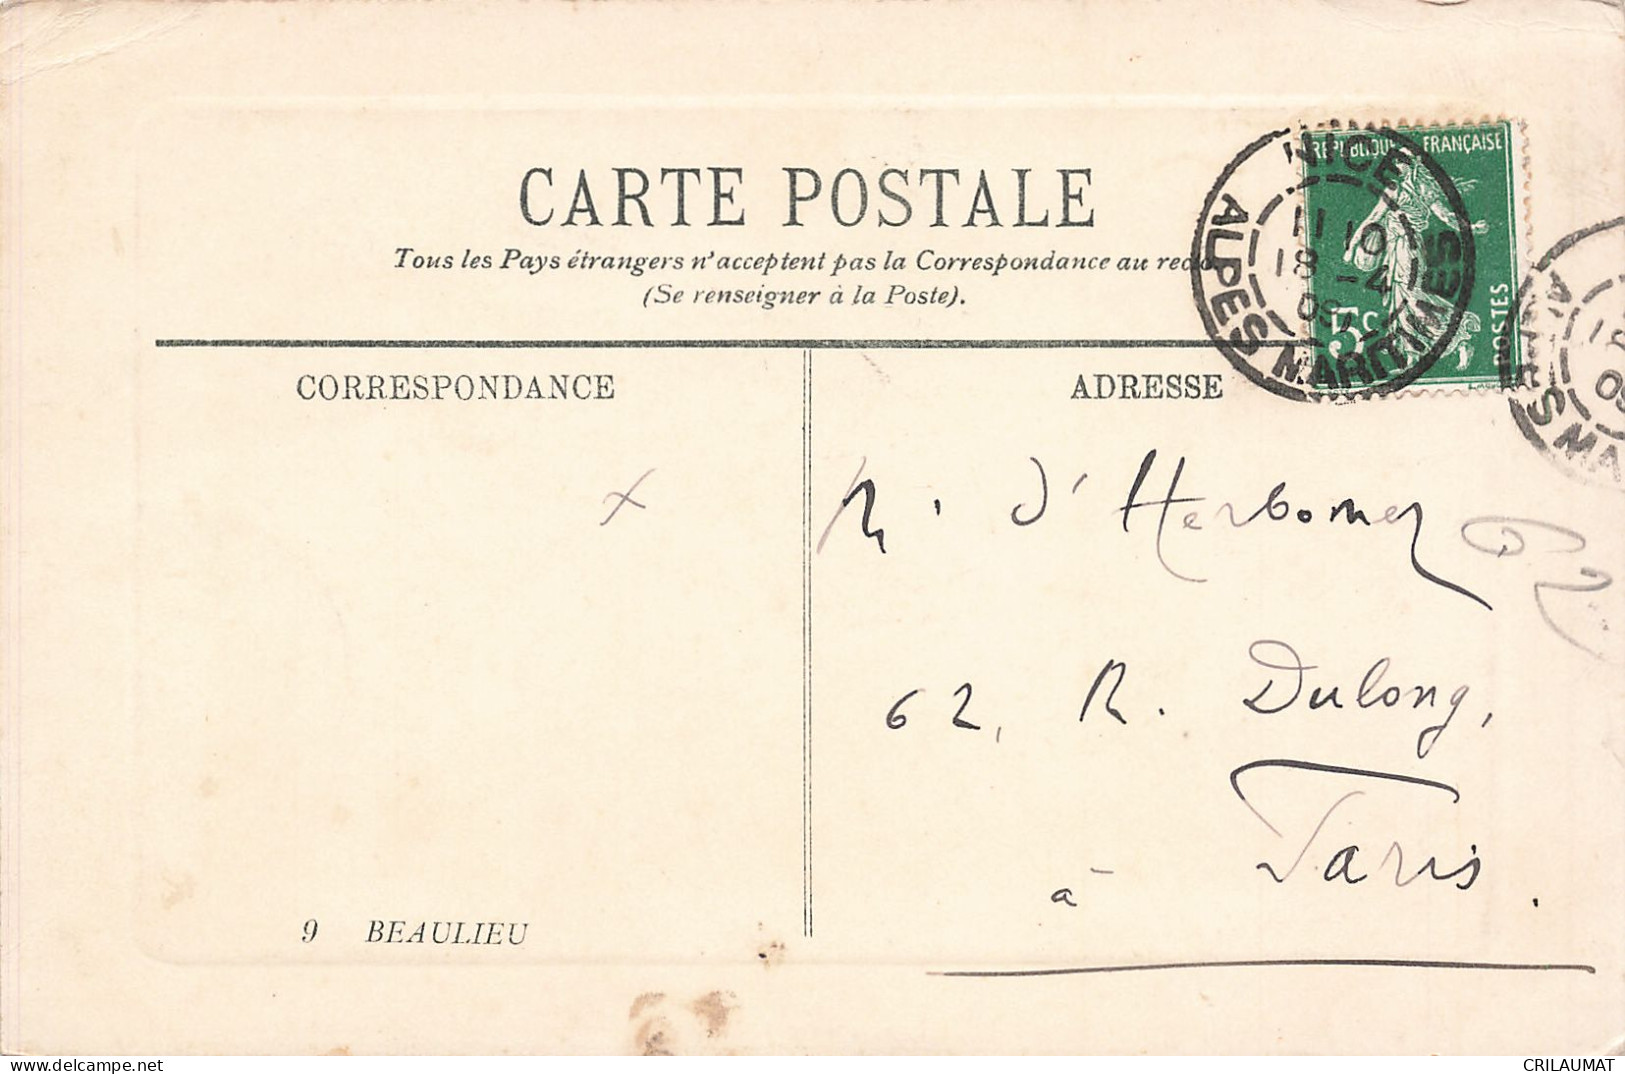 CARTE POSTALE
Tous les Pays étrangers n'acceptent pas la Correspondance au recto
(Se renseigner à la Poste).
RÉPUBLIQUE FRANÇAISE
5c
POSTES
NICE
11 10
18 -4
09
ALPES MARITIMES
18
09
CORRESPONDANCE
ADRESSE
M. d'Herbomez
62
62, R. Dulong,
à Paris.
9 BEAULIEU
delcampe.net
CRILAUMAT